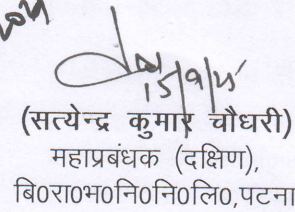 15/9/25
(सत्येन्द्र कुमार चौधरी)
महाप्रबंधक (दक्षिण),
बि0रा0भ0नि0नि0लि0,पटना